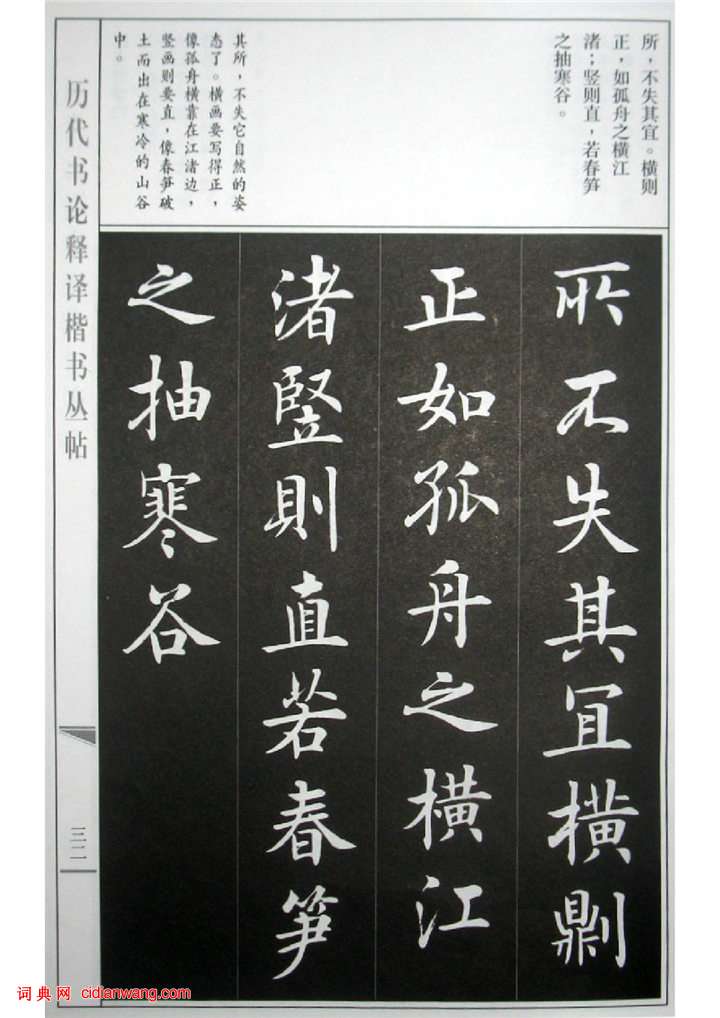 所，不失其宜。横则
正，如孤舟之横江
渚；竖则直，若春笋
之抽寒谷。
其所，不失它自然的姿
态了。横画要写得正，
像孤舟横靠在江渚边，
竖画则要直，像春笋破
土而出在寒冷的山谷
中。
历代书论释译楷书丛帖
所不失其宜橫劓
正如孤舟之橫江
渚竪則直若春笋
之抽寒谷
三二
词典网 cidianwang.com